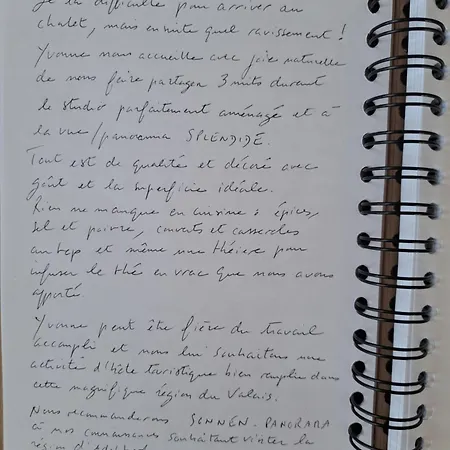 de la difficulté pour arriver au
chalet, mais ensuite quel ravissement !
Yvonne nous accueille avec joie naturelle
de nous faire partager 3 nuits durant
le studio parfaitement aménagé et à
la vue/panorama SPLENDIDE.
Tout est de qualité et décoré avec
goût et la superficie idéale.
Rien ne manque en cuisine : épices,
sel et poivre, couverts et casseroles
au top et même une théière pour
infuser le thé en vrac que nous avons
apporté.
Yvonne peut être fière du travail
accompli et nous lui souhaitons une
activité d'hôte touristique bien remplie dans
cette magnifique région du Valais.
Nous recommanderons SONNEN. PANORAMA
à nos connaissances souhaitant visiter la
région d'